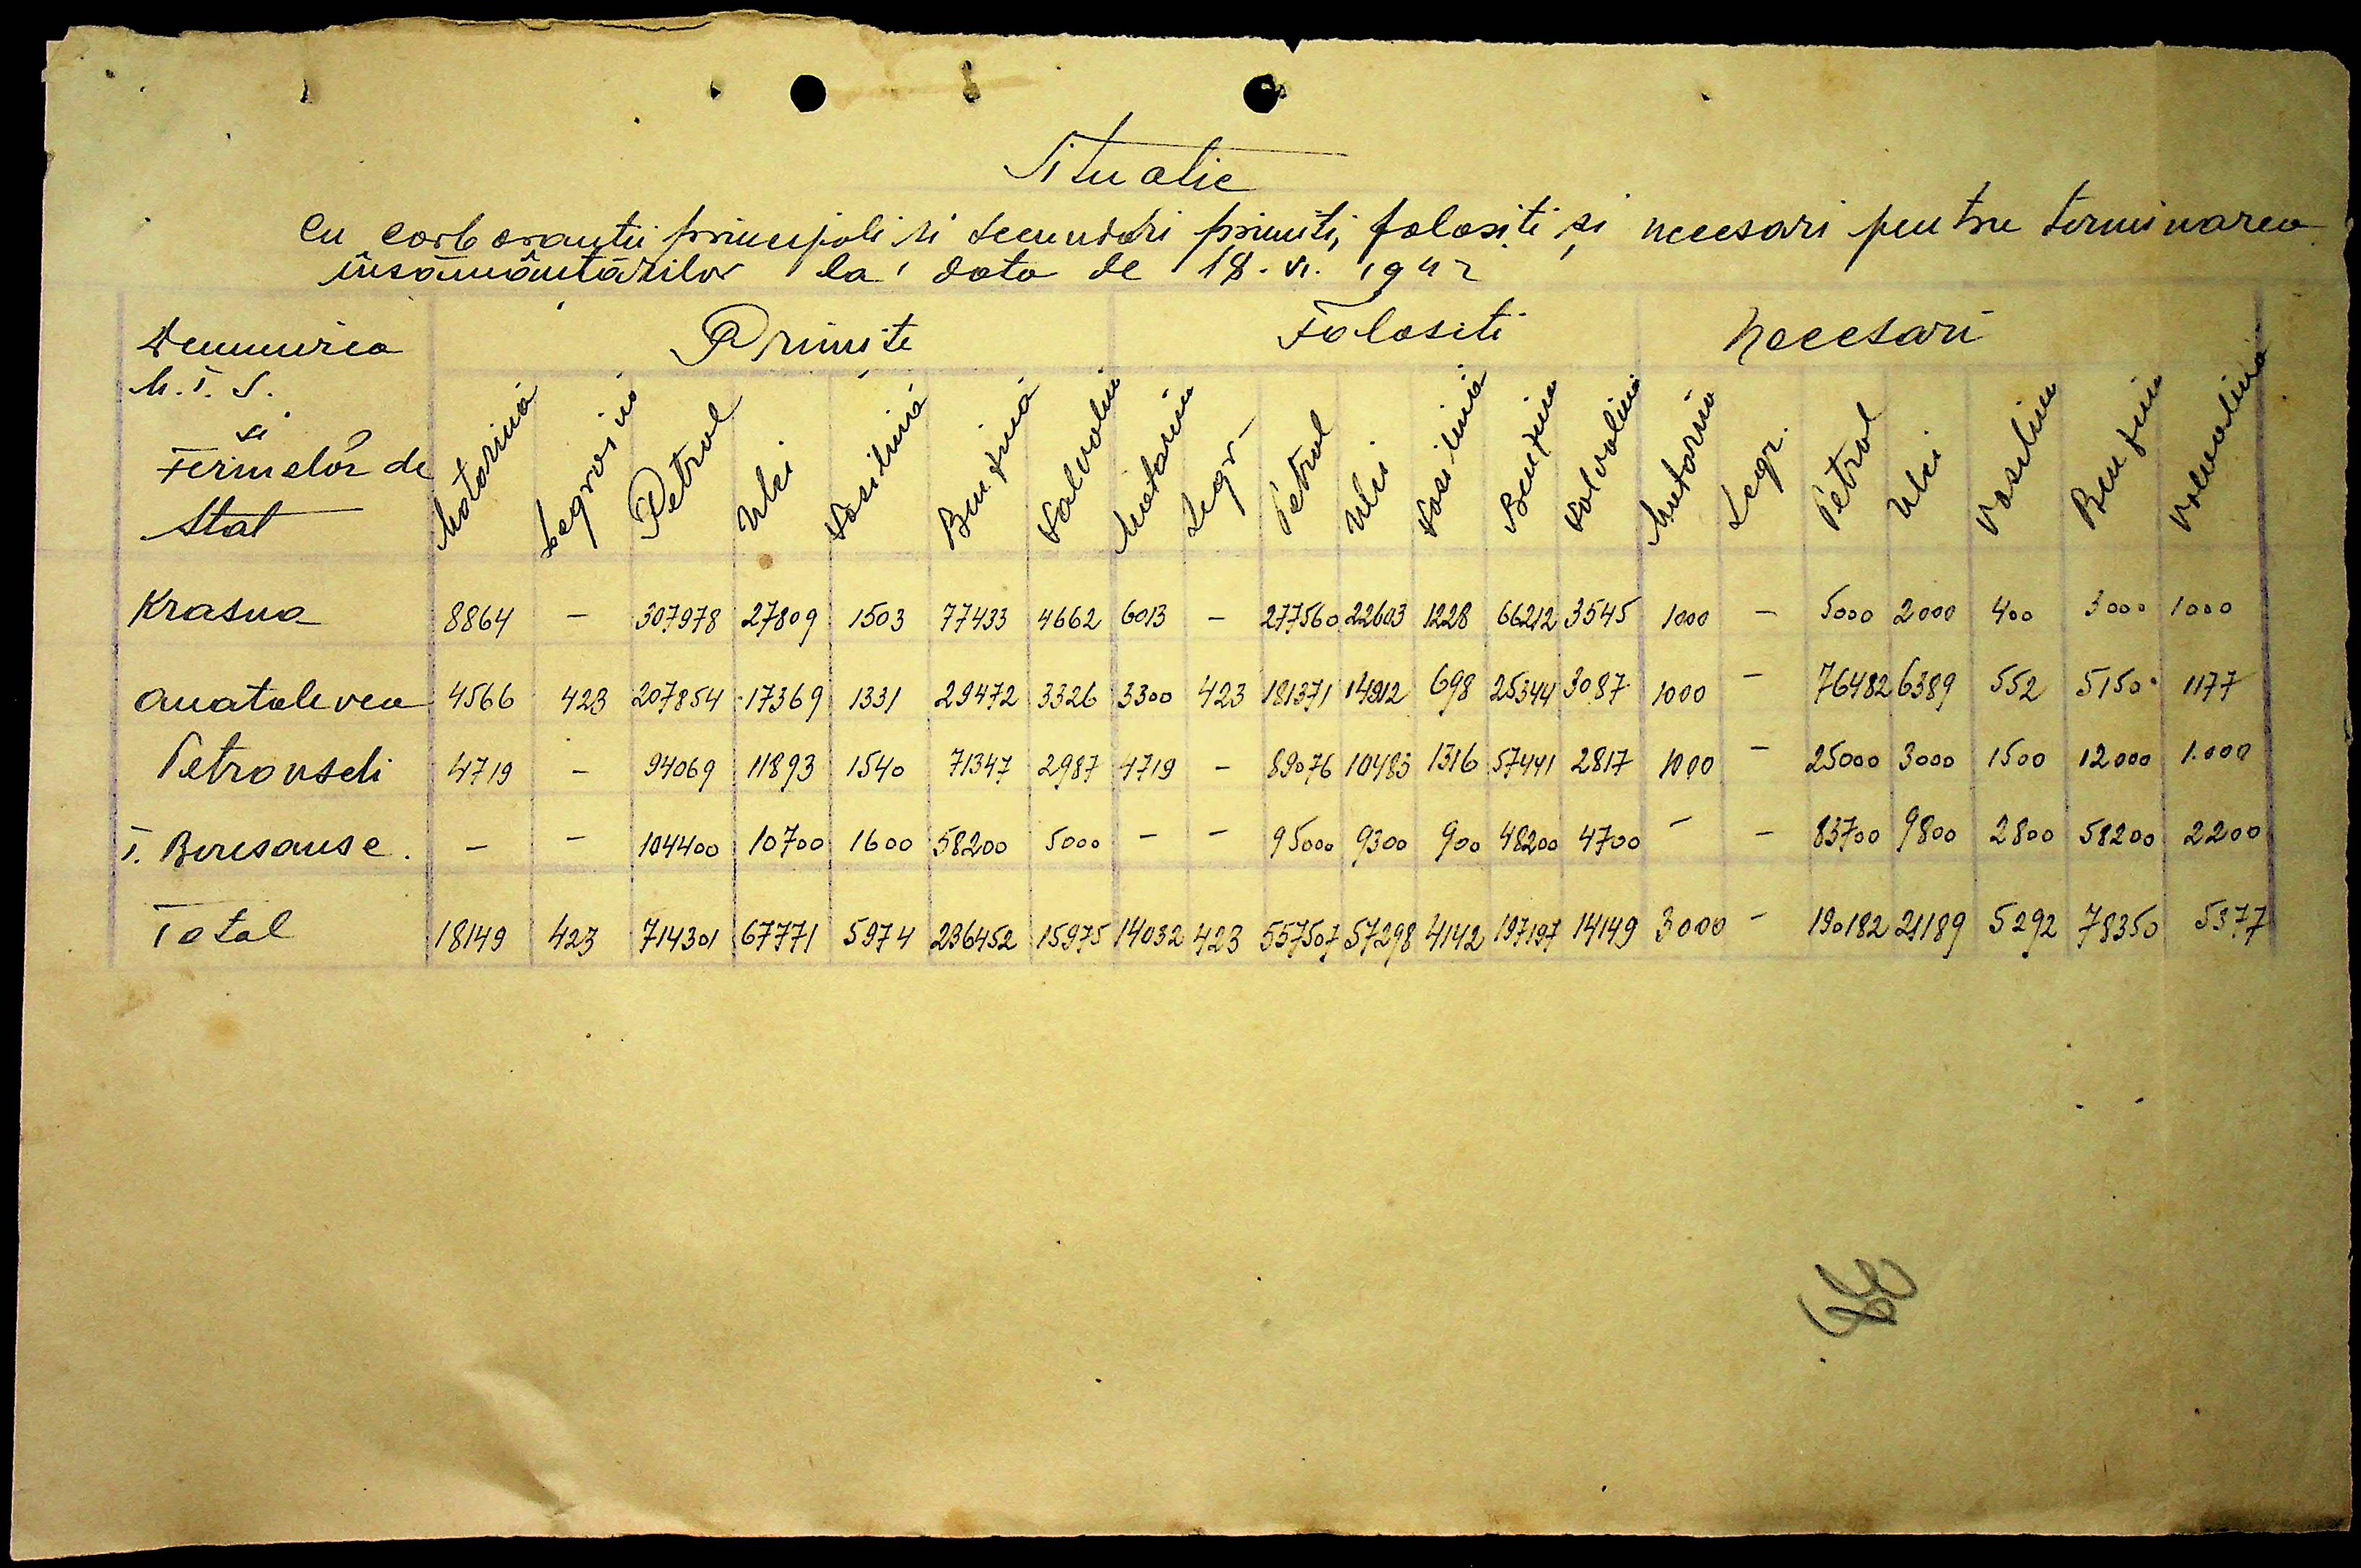 Situatie
Cu carboranții principali si secundari primiti, folositi și necesari pentru terminarea
însămânțărilor la data de 18. VI. 1942
Denumirea M.T.S. si Fermelor de Stat | Primite | Folositi | Necesari
Motorină | Legroină | Petrol | Ulei | Vasilină | Benzină | Valvolin | Motorină | Legr- | Petrol | Ulei | Vasilină | Benzina | Valvolina | Motorina | Legr. | Petrol | Ulei | Vasilin | Benzina | Valvolină
Krasna 8864 – 307978 27809 1503 77433 4662 6013 – 277560 22603 1228 66212 3545 1000 – 5000 2000 400 3000 1000
Anatolevca 4566 423 207854 17369 1331 29472 3326 3300 423 181371 14912 698 25344 3087 1000 – 76482 6389 552 5150 1177
Petrovschi 4719 – 94069 11893 1540 71347 2987 4719 – 89076 10483 1316 57441 2817 1000 – 25000 3000 1500 12000 1.000
T. Beresanse. – – 104400 10700 1600 58200 5000 – – 95000 9300 900 48200 4700 – – 83700 9800 2800 58200 2200
Total 18149 423 714301 67771 5974 236452 15975 14032 423 557507 57298 4142 197197 14149 3000 – 190182 21189 5292 78350 5377